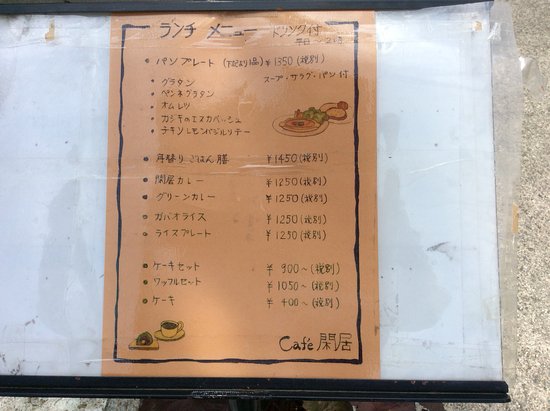 ランチ メニュー ドリンク付
平日 ~2時
パンプレート (下記より1品) ¥1350(税別)
スープ・サラダ・パン付
グラタン
ペンネグラタン
オムレツ
カジキのエスカベッシュ
チキンレモンバジルソテー
月替りごはん膳 ¥1450(税別)
閑居カレー ¥1250(税別)
グリーンカレー ¥1250(税別)
ガパオライス ¥1250(税別)
ライスプレート ¥1250(税別)
ケーキセット ¥900~(税別)
ワッフルセット ¥1050~(税別)
ケーキ ¥400~(税別)
Café 閑居